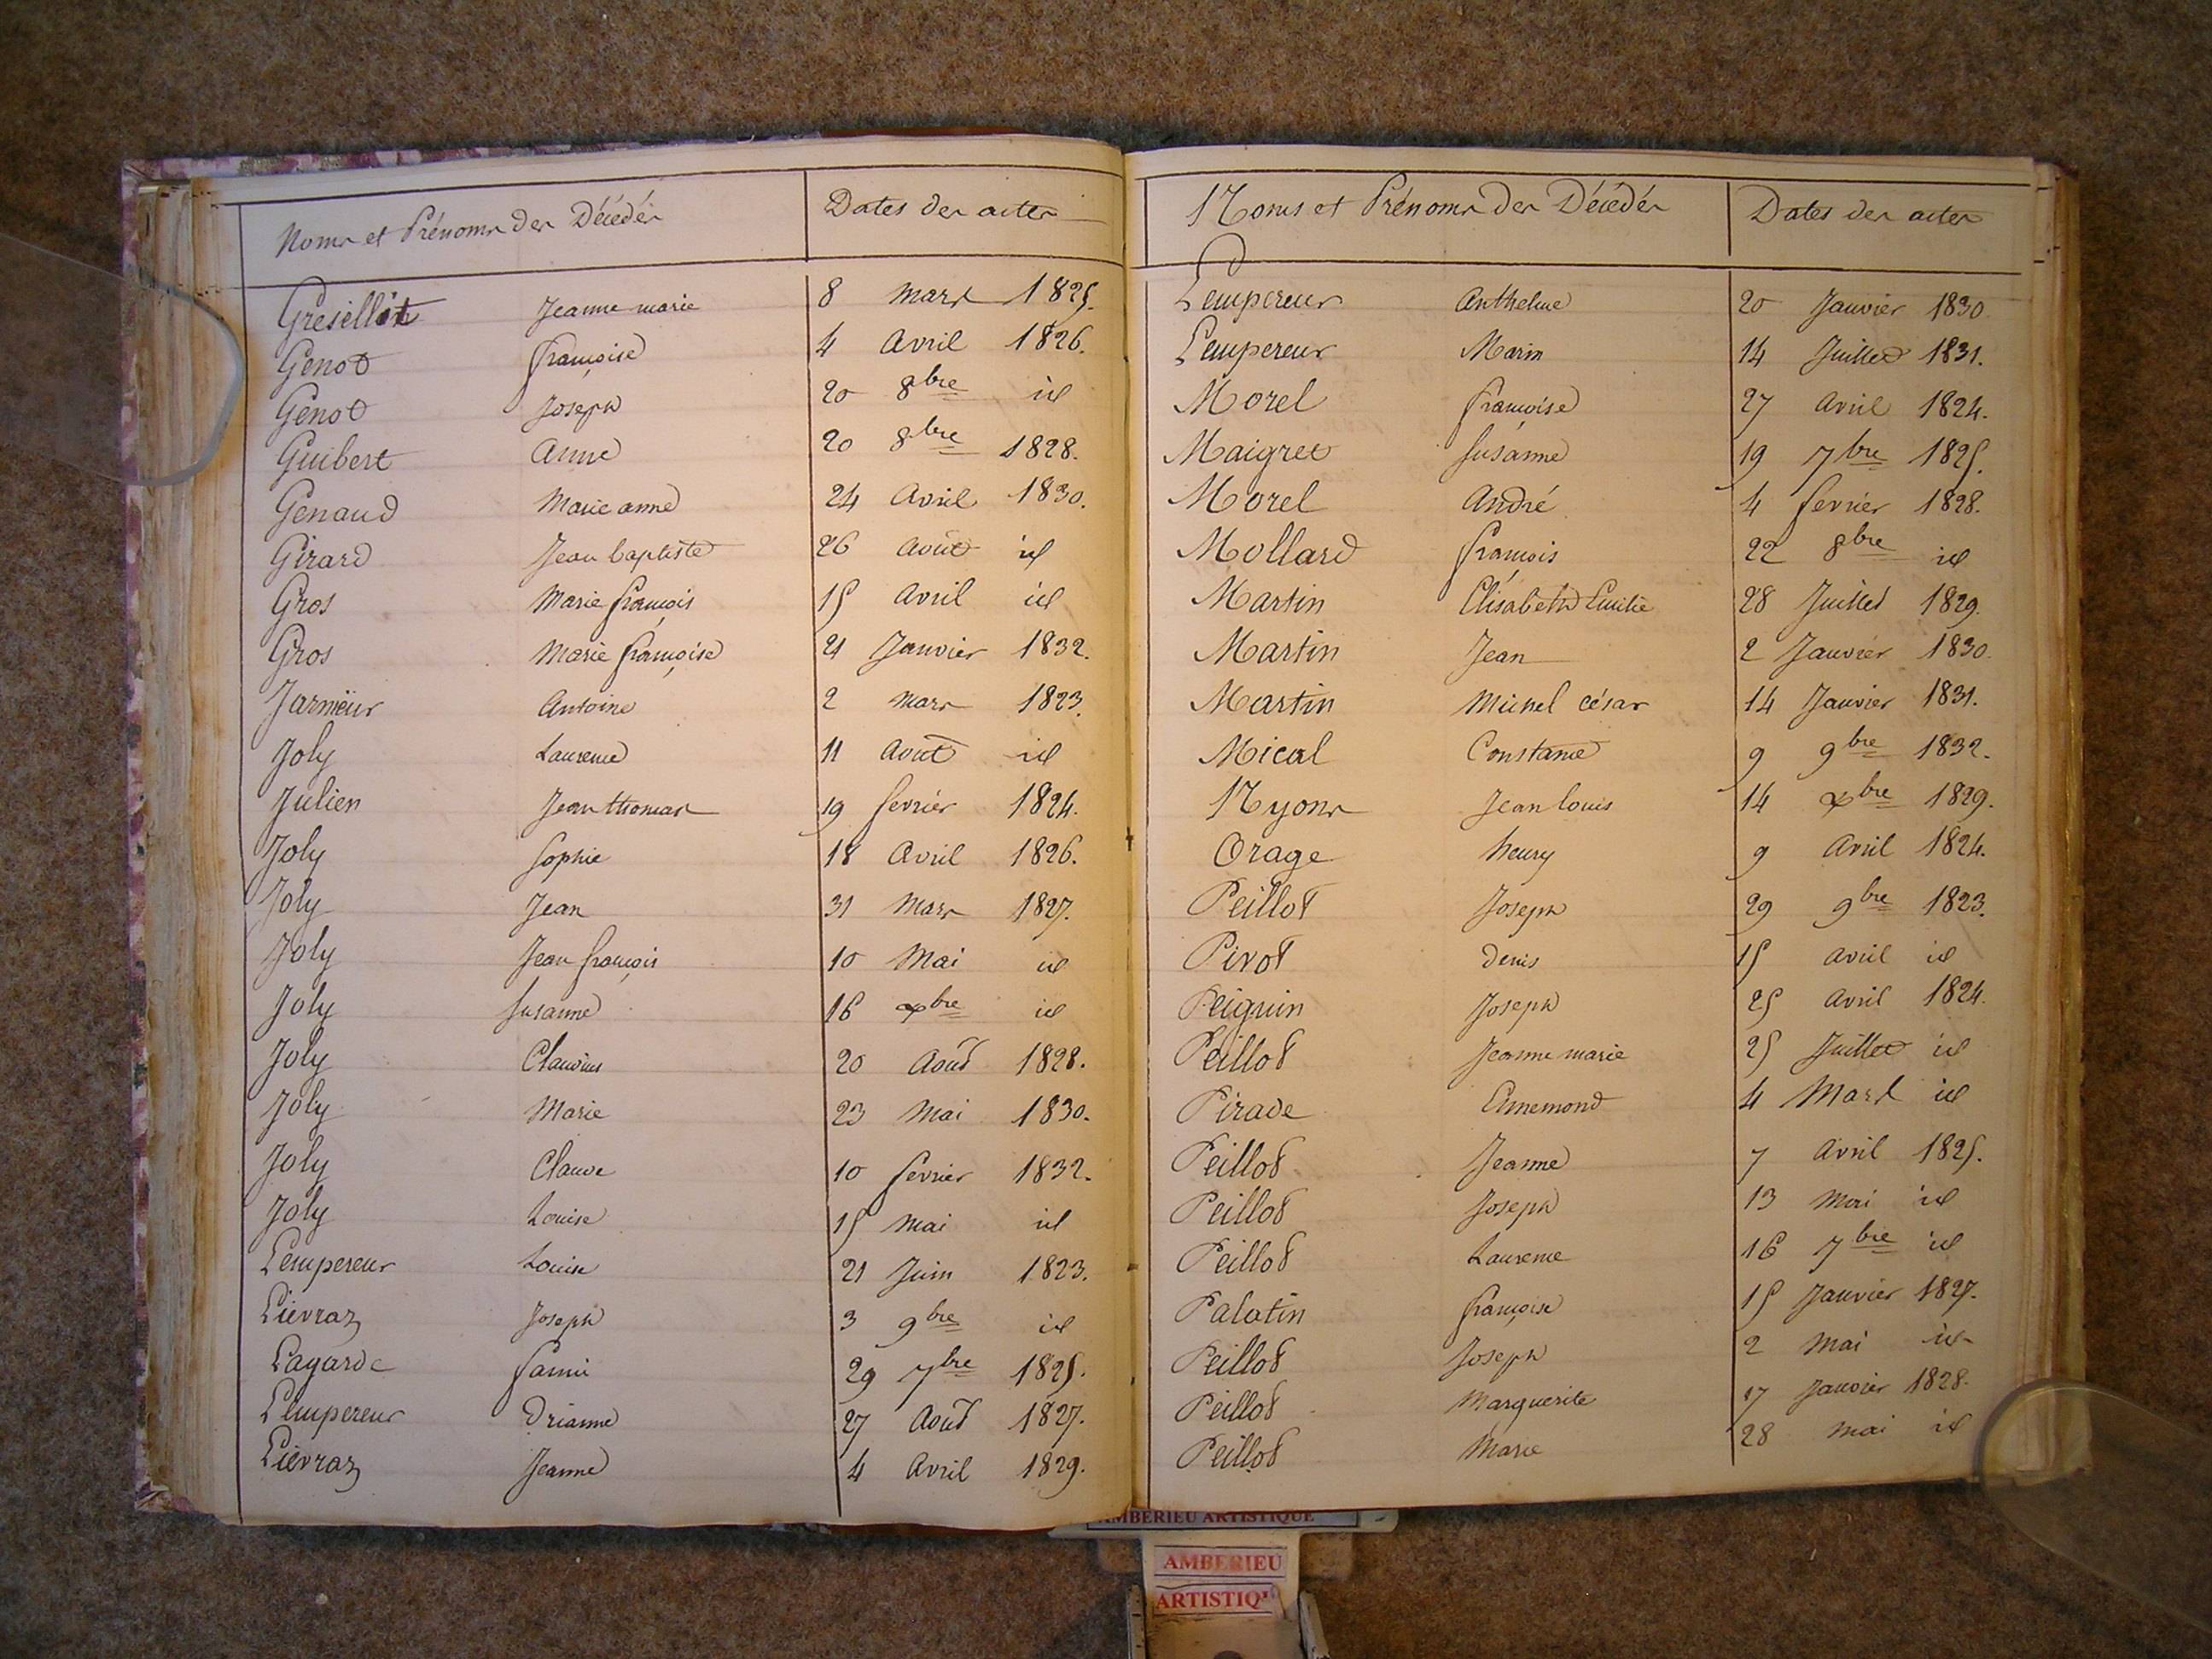 Noms et Prénoms des Décédés Dates des actes
Gresillot Jeanne marie 8 mars 1825.
Genot françoise 4 Avril 1826.
Genot Joseph 20 8bre id
Guibert Anne 20 8bre 1828.
Genaud Marie anne 24 Avril 1830.
Girard Jean baptiste 26 Août id
Gros Marie françois 15 Avril id
Gros Marie françoise 21 Janvier 1832.
Antoine 2 mars 1823.
Joly Laurence 11 Août id
Julien Jean thomas 19 fevrier 1824.
Joly Sophie 18 Avril 1826.
Joly Jean 31 Mars 1827.
Joly Jean françois 10 Mai id
Joly Susanne 16 xbre id
Joly Claudius 20 Août 1828.
Joly Marie 23 Mai 1830.
Joly Claude 10 fevrier 1832.
Joly Louise 15 mai id
Lempereur Louise 21 Juin 1823.
Liévraz Joseph 3 9bre id
Lagarde fanni 29 7bre 1825.
Lempereur Drianne 27 Août 1827.
Liévraz Jeanne 4 Avril 1829.
Noms et Prénoms des Décédés Dates des actes
Lempereur Anthelme 20 Janvier 1830
Lempereur Marin 14 Juillet 1831.
Morel françoise 27 Avril 1824.
Maigret Susanne 19 7bre 1825.
Morel André 4 fevrier 1828.
Mollard françois 22 8bre id
Martin Elisabeth Emilie 28 Juillet 1829.
Martin Jean 2 Janvier 1830.
Martin Michel césar 14 Janvier 1831.
Mical Constance 9 9bre 1832.
Nyons Jean louis 14 xbre 1829.
Orage henry 9 Avril 1824.
Peillot Joseph 29 9bre 1823.
Pivot denis 15 avril id
Peiguin Joseph 25 Avril 1824.
Peillot Jeanne marie 25 Juillet id
Pirade Ennemond 4 Mars id
Peillot Jeanne 7 Avril 1825.
Peillot Joseph 13 Mai id
Peillot Laurence 16 7bre id
Palatin françoise 15 Janvier 1827.
Peillot Joseph 2 Mai id
Peillot Marguerite 17 Janvier 1828.
Peillot Marie 28 Mai id
AMBERIEU ARTISTIQUE
AMBERIEU